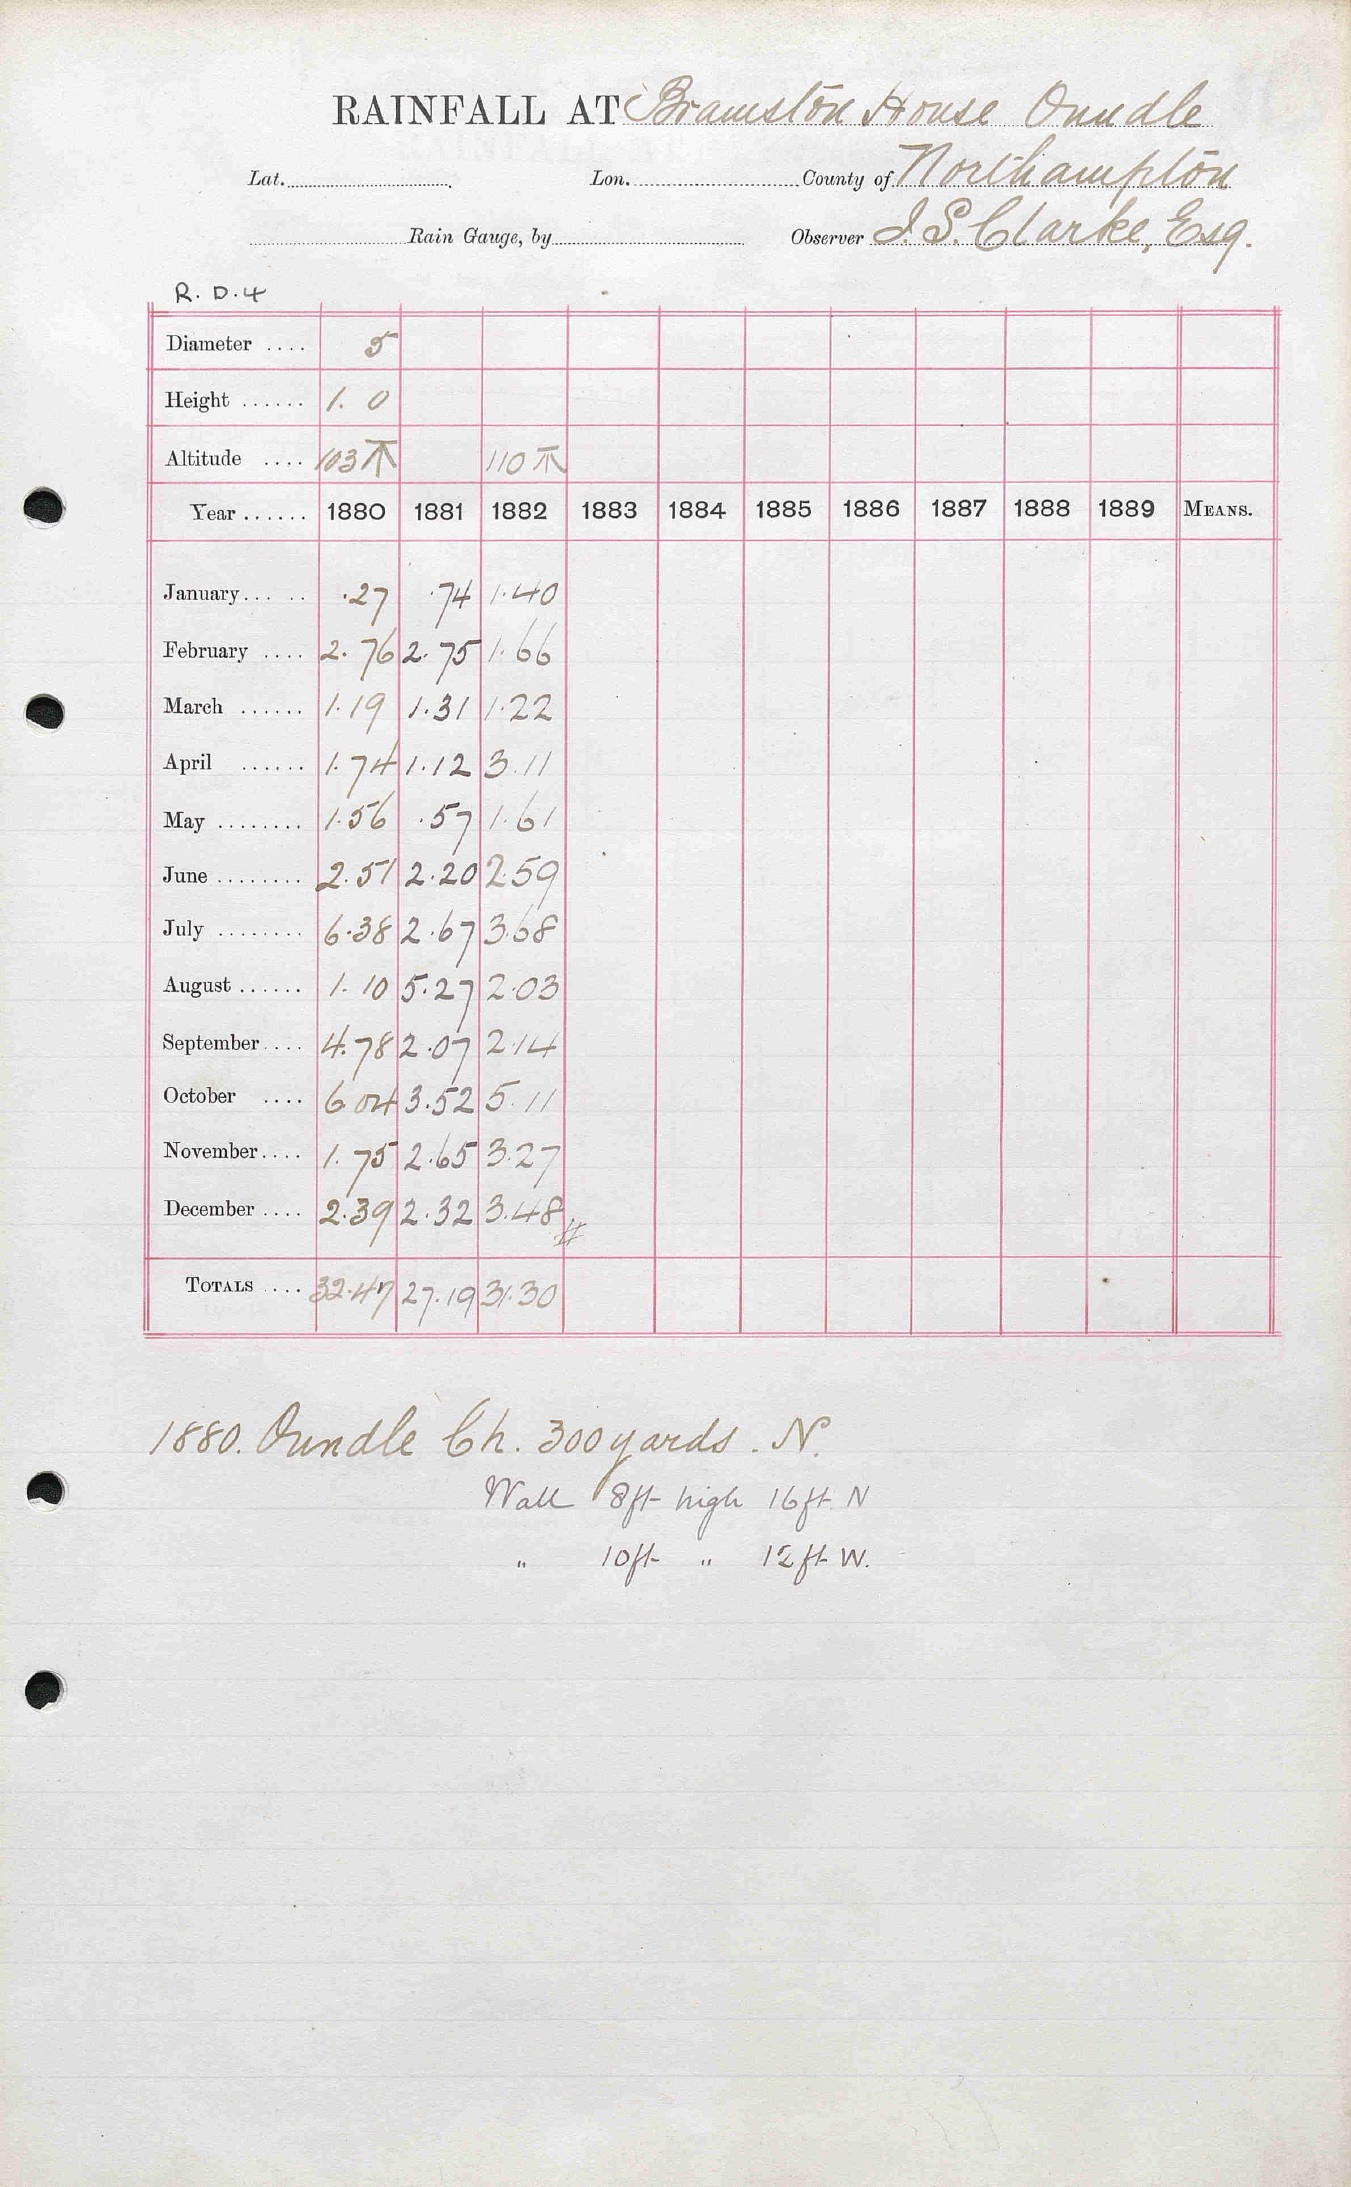 RAINFALL AT Bramston House Oundle
Lat. Lon. County of Northampton
Rain Gauge, by Observer J. S. Clarke, Esq.
R. D. 4
Diameter .... 5
Height ...... 1. 0
Altitude .... 103 110
Year ...... 1880 1881 1882 1883 1884 1885 1886 1887 1888 1889 MEANS.
January... .. .27 .74 1.40
February .... 2.76 2.75 1.66
March ...... 1.19 1.31 1.22
April ...... 1.74 1.12 3.11
May ........ 1.56 .57 1.61
June ........ 2.51 2.20 2.59
July ........ 6.38 2.67 3.68
August ...... 1.10 5.27 2.03
September .... 4.78 2.07 2.14
October .... 6.04 3.52 5.11
November .... 1.75 2.65 3.27
December .... 2.39 2.32 3.48
TOTALS .... 32.47 27.19 31.30
1880. Oundle Ch. 300 yards. N.
Wall 8ft high 16ft. N
" 10ft " 12ft W.